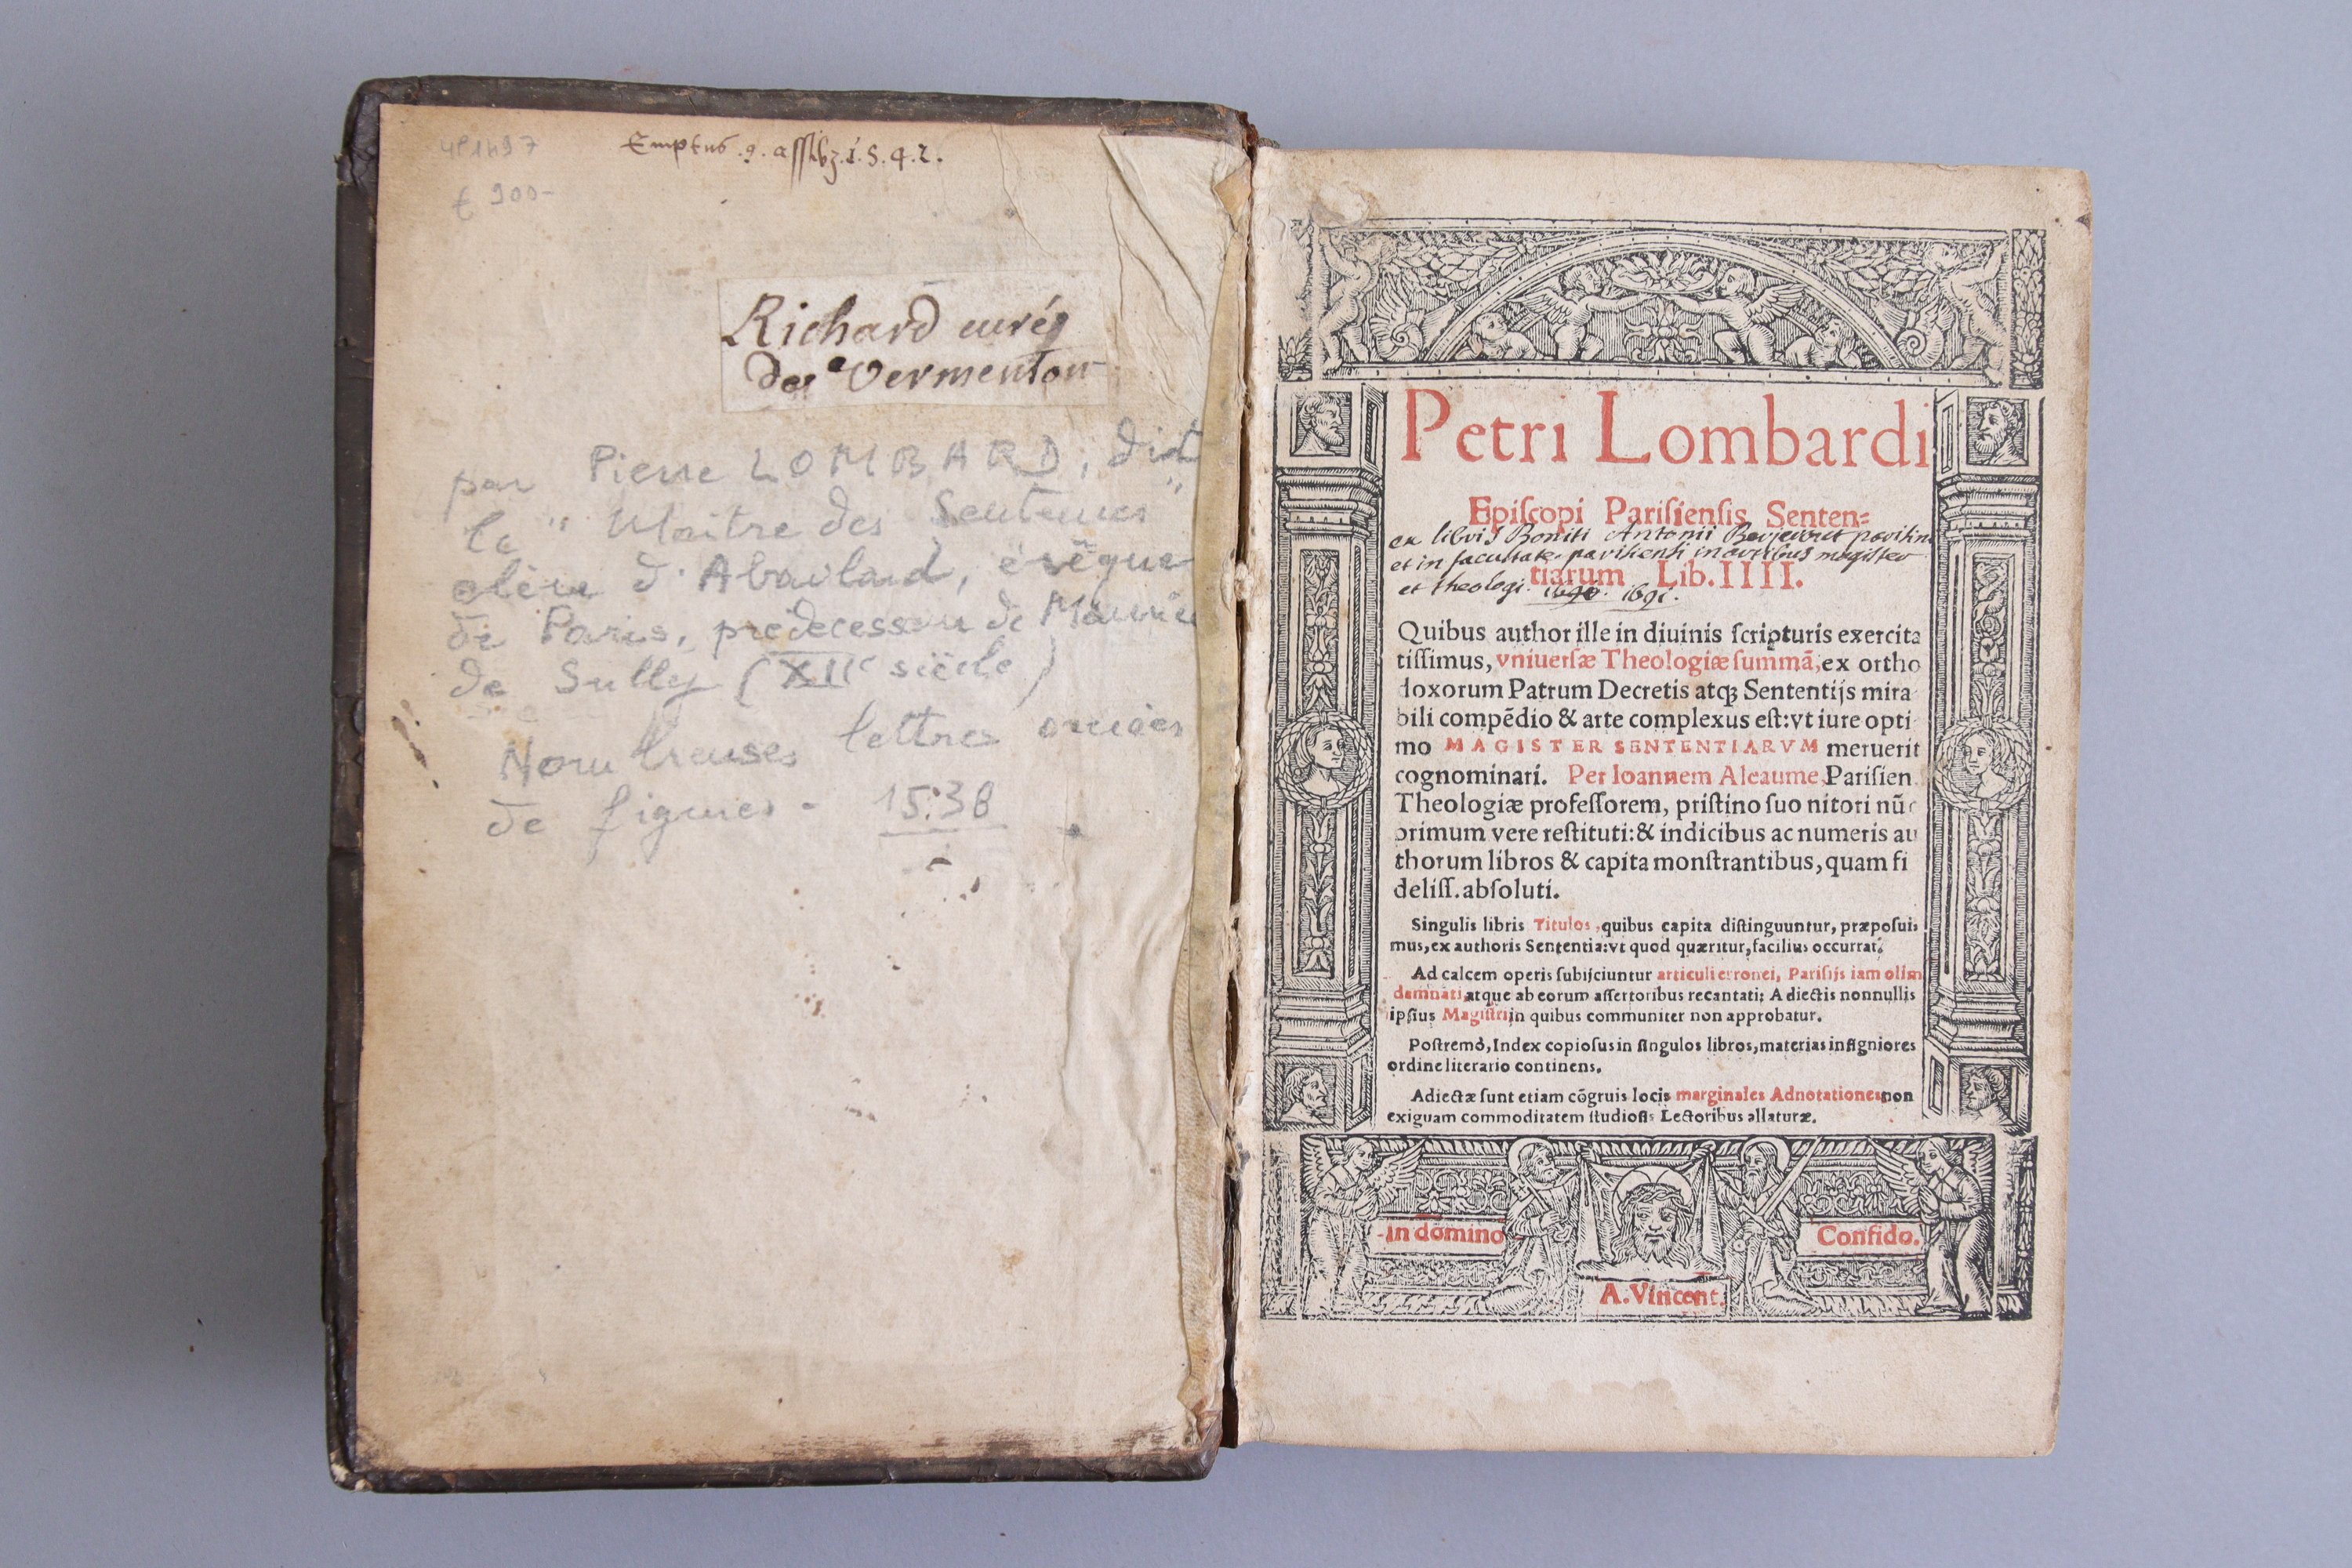 4P1497
€ 900-
Emptus .9. assibz .1.5.4.2.
Richard curéy
de Vermenton
par Pierre LOMBARD, dit
le "Maître des Sentences"
élève d'Abailard, évêque
de Paris, prédécesseur de Maurice
de Sully (XIIe siècle)
Nombreuses lettres ornées
de figures - 1538
Petri Lombardi
Epiſcopi Pariſienſis Senten=
ex libris Boniti Antonii parisin
et in facultate parisiensi in artibus magister
tiarum Lib.IIII.
et theologi. 1690. 1691.
Quibus author ille in diuinis ſcripturis exercita
tiſſimus, vniuerſæ Theologiæ ſummã, ex ortho
doxorum Patrum Decretis atq; Sententijs mira
bili compẽdio & arte complexus eſt: vt iure opti
mo MAGISTER SENTENTIARVM meruerit
cognominari. Per Ioannem Aleaume Pariſien
Theologiæ profeſſorem, priſtino ſuo nitori nũc
primum vere reſtituti: & indicibus ac numeris au
thorum libros & capita monſtrantibus, quam fi
deliſſ. abſoluti.
Singulis libris Titulos, quibus capita diſtinguuntur, præpoſui
mus, ex authoris Sententia: vt quod quæritur, facilius occurrat.
Ad calcem operis ſubijciuntur articuli erronei, Pariſijs iam olim
damnati, atque ab eorum aſſertoribus recantati: Adiectis nonnullis
ipſius Magiſtri, in quibus communiter non approbatur.
Poſtremò, Index copioſus in ſingulos libros, materias inſigniores
ordine literario continens.
Adiectæ ſunt etiam cõgruis locis marginales Adnotationes non
exiguam commoditatem ſtudioſis Lectoribus allaturæ.
In dõmino
Confido.
A. Vincent.